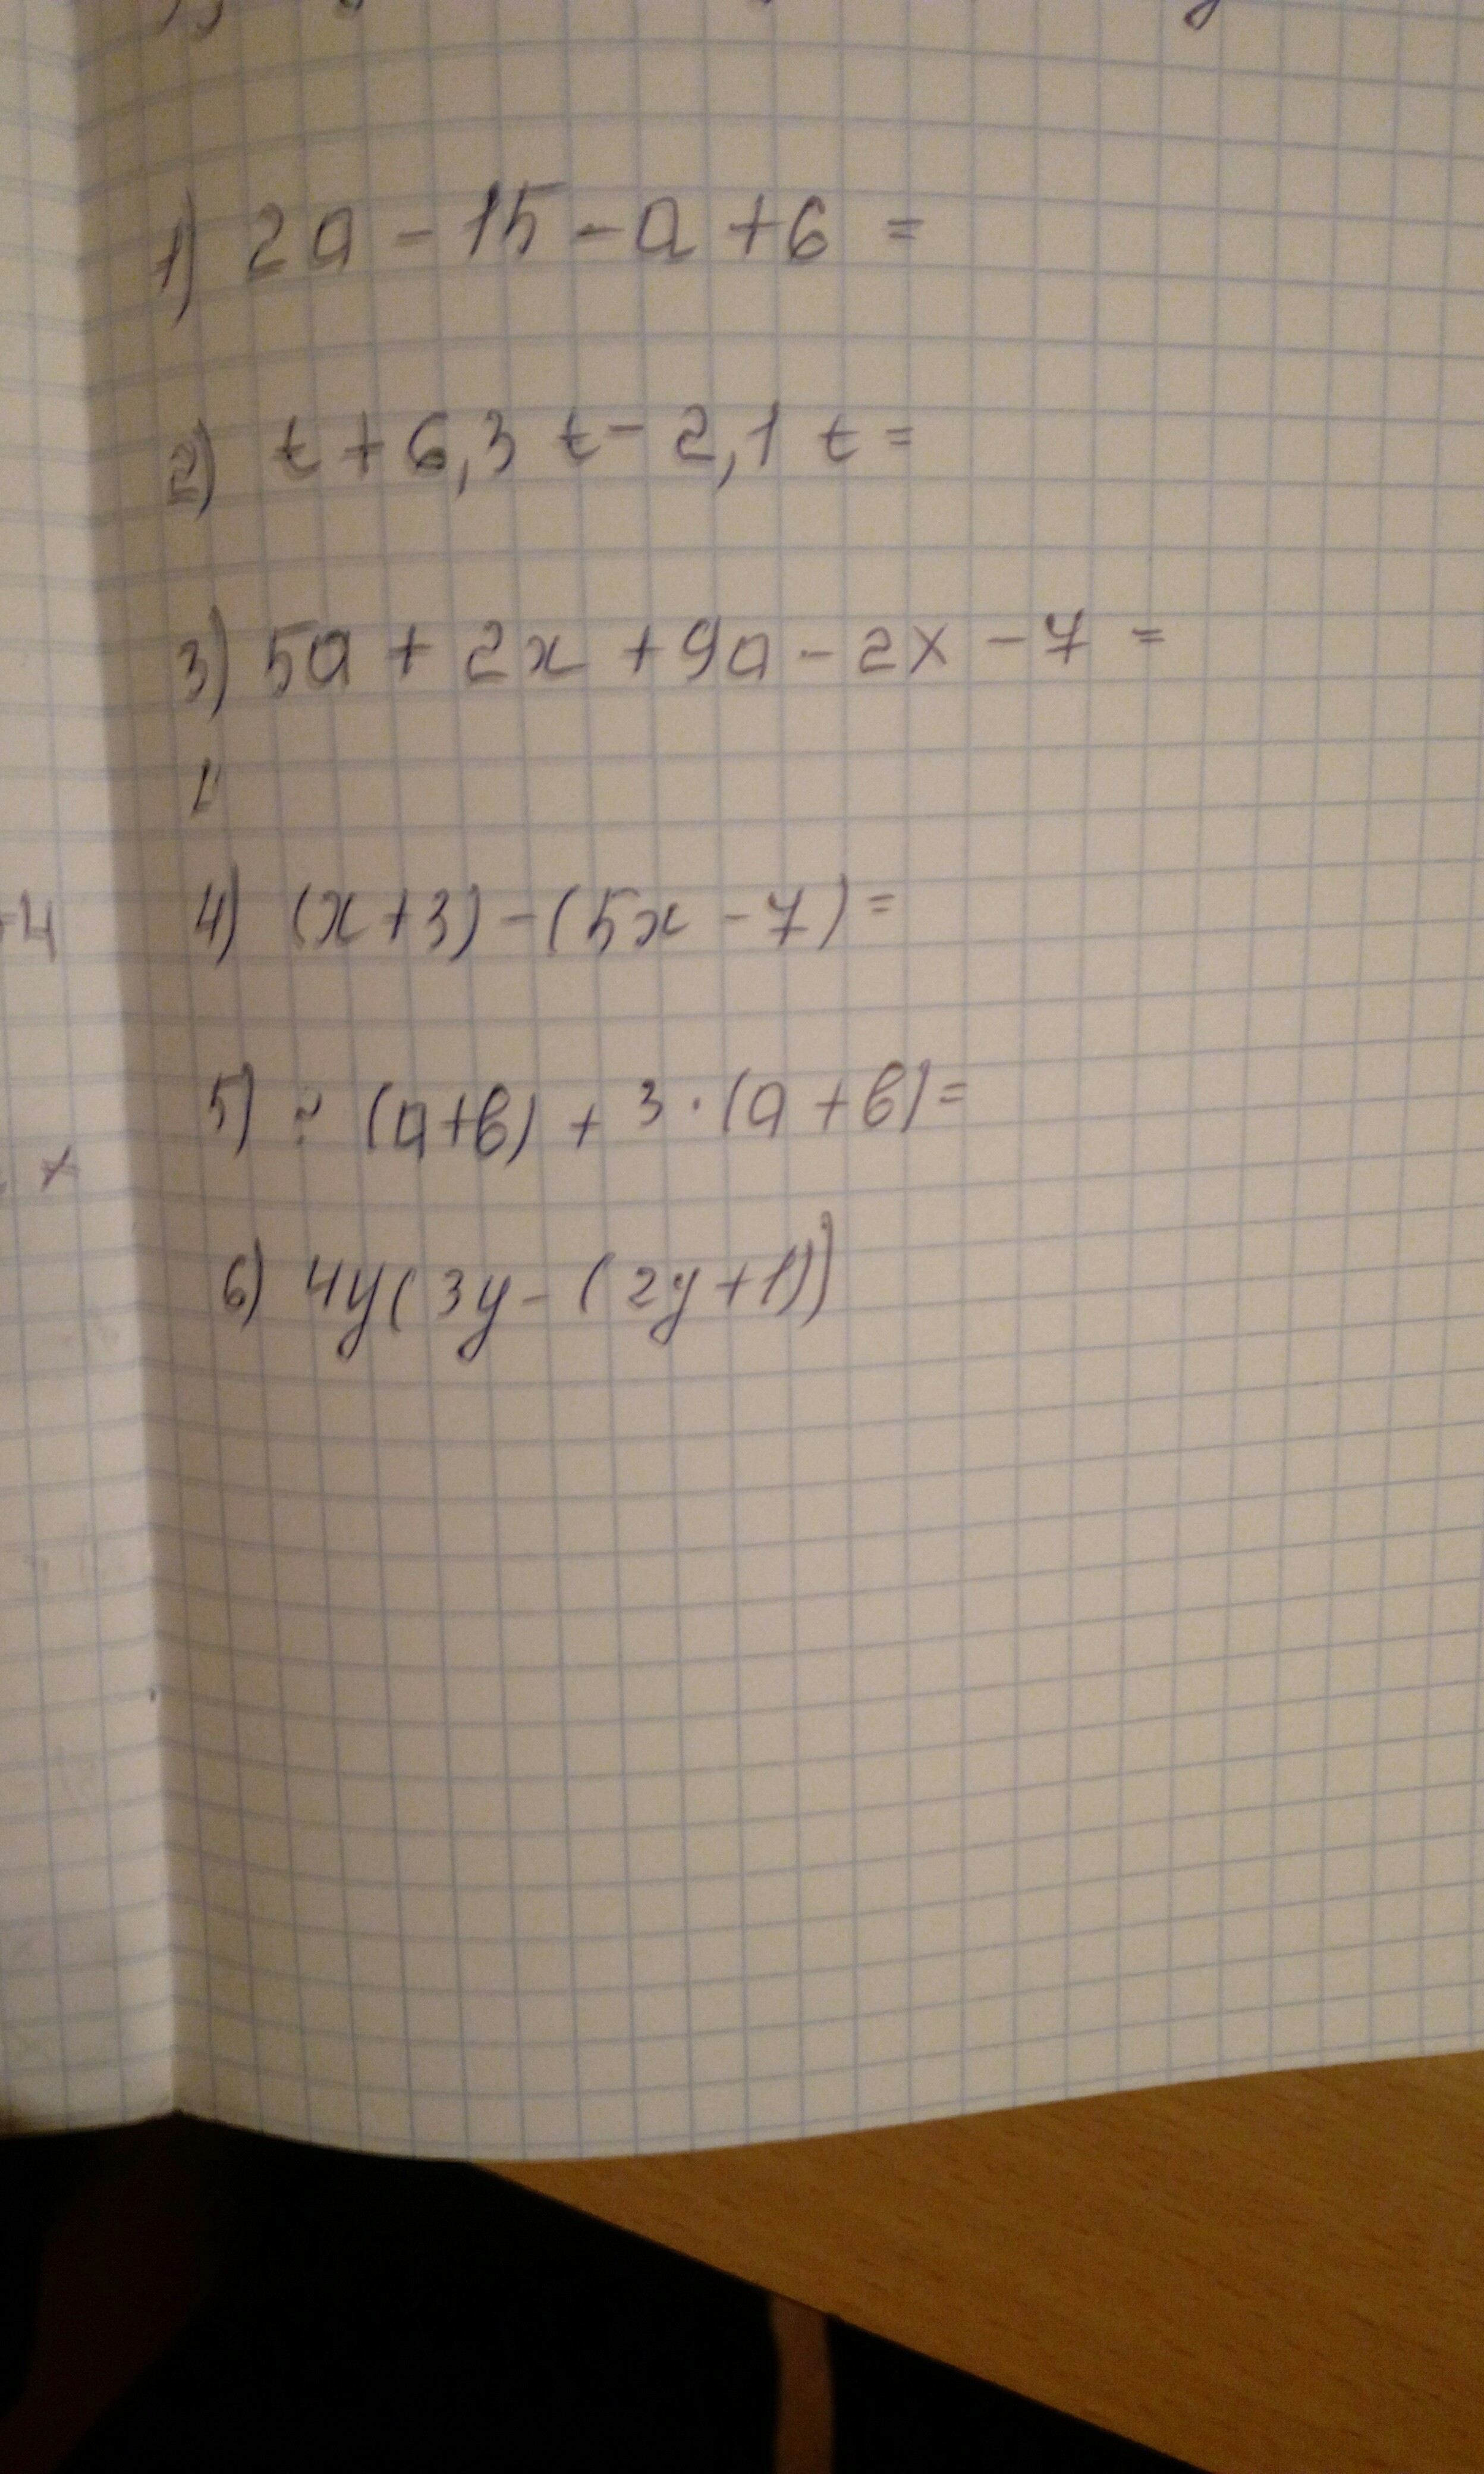 1) 2a - 15 - a + 6 =
2) t + 6,3 t - 2,1 t =
3) 5a + 2x + 9a - 2x - 7 =
4) (x+3) - (5x - 7) =
5) (a+b) + 3 · (a + b) =
6) 4y( 3y - ( 2y + 1))
-4
x